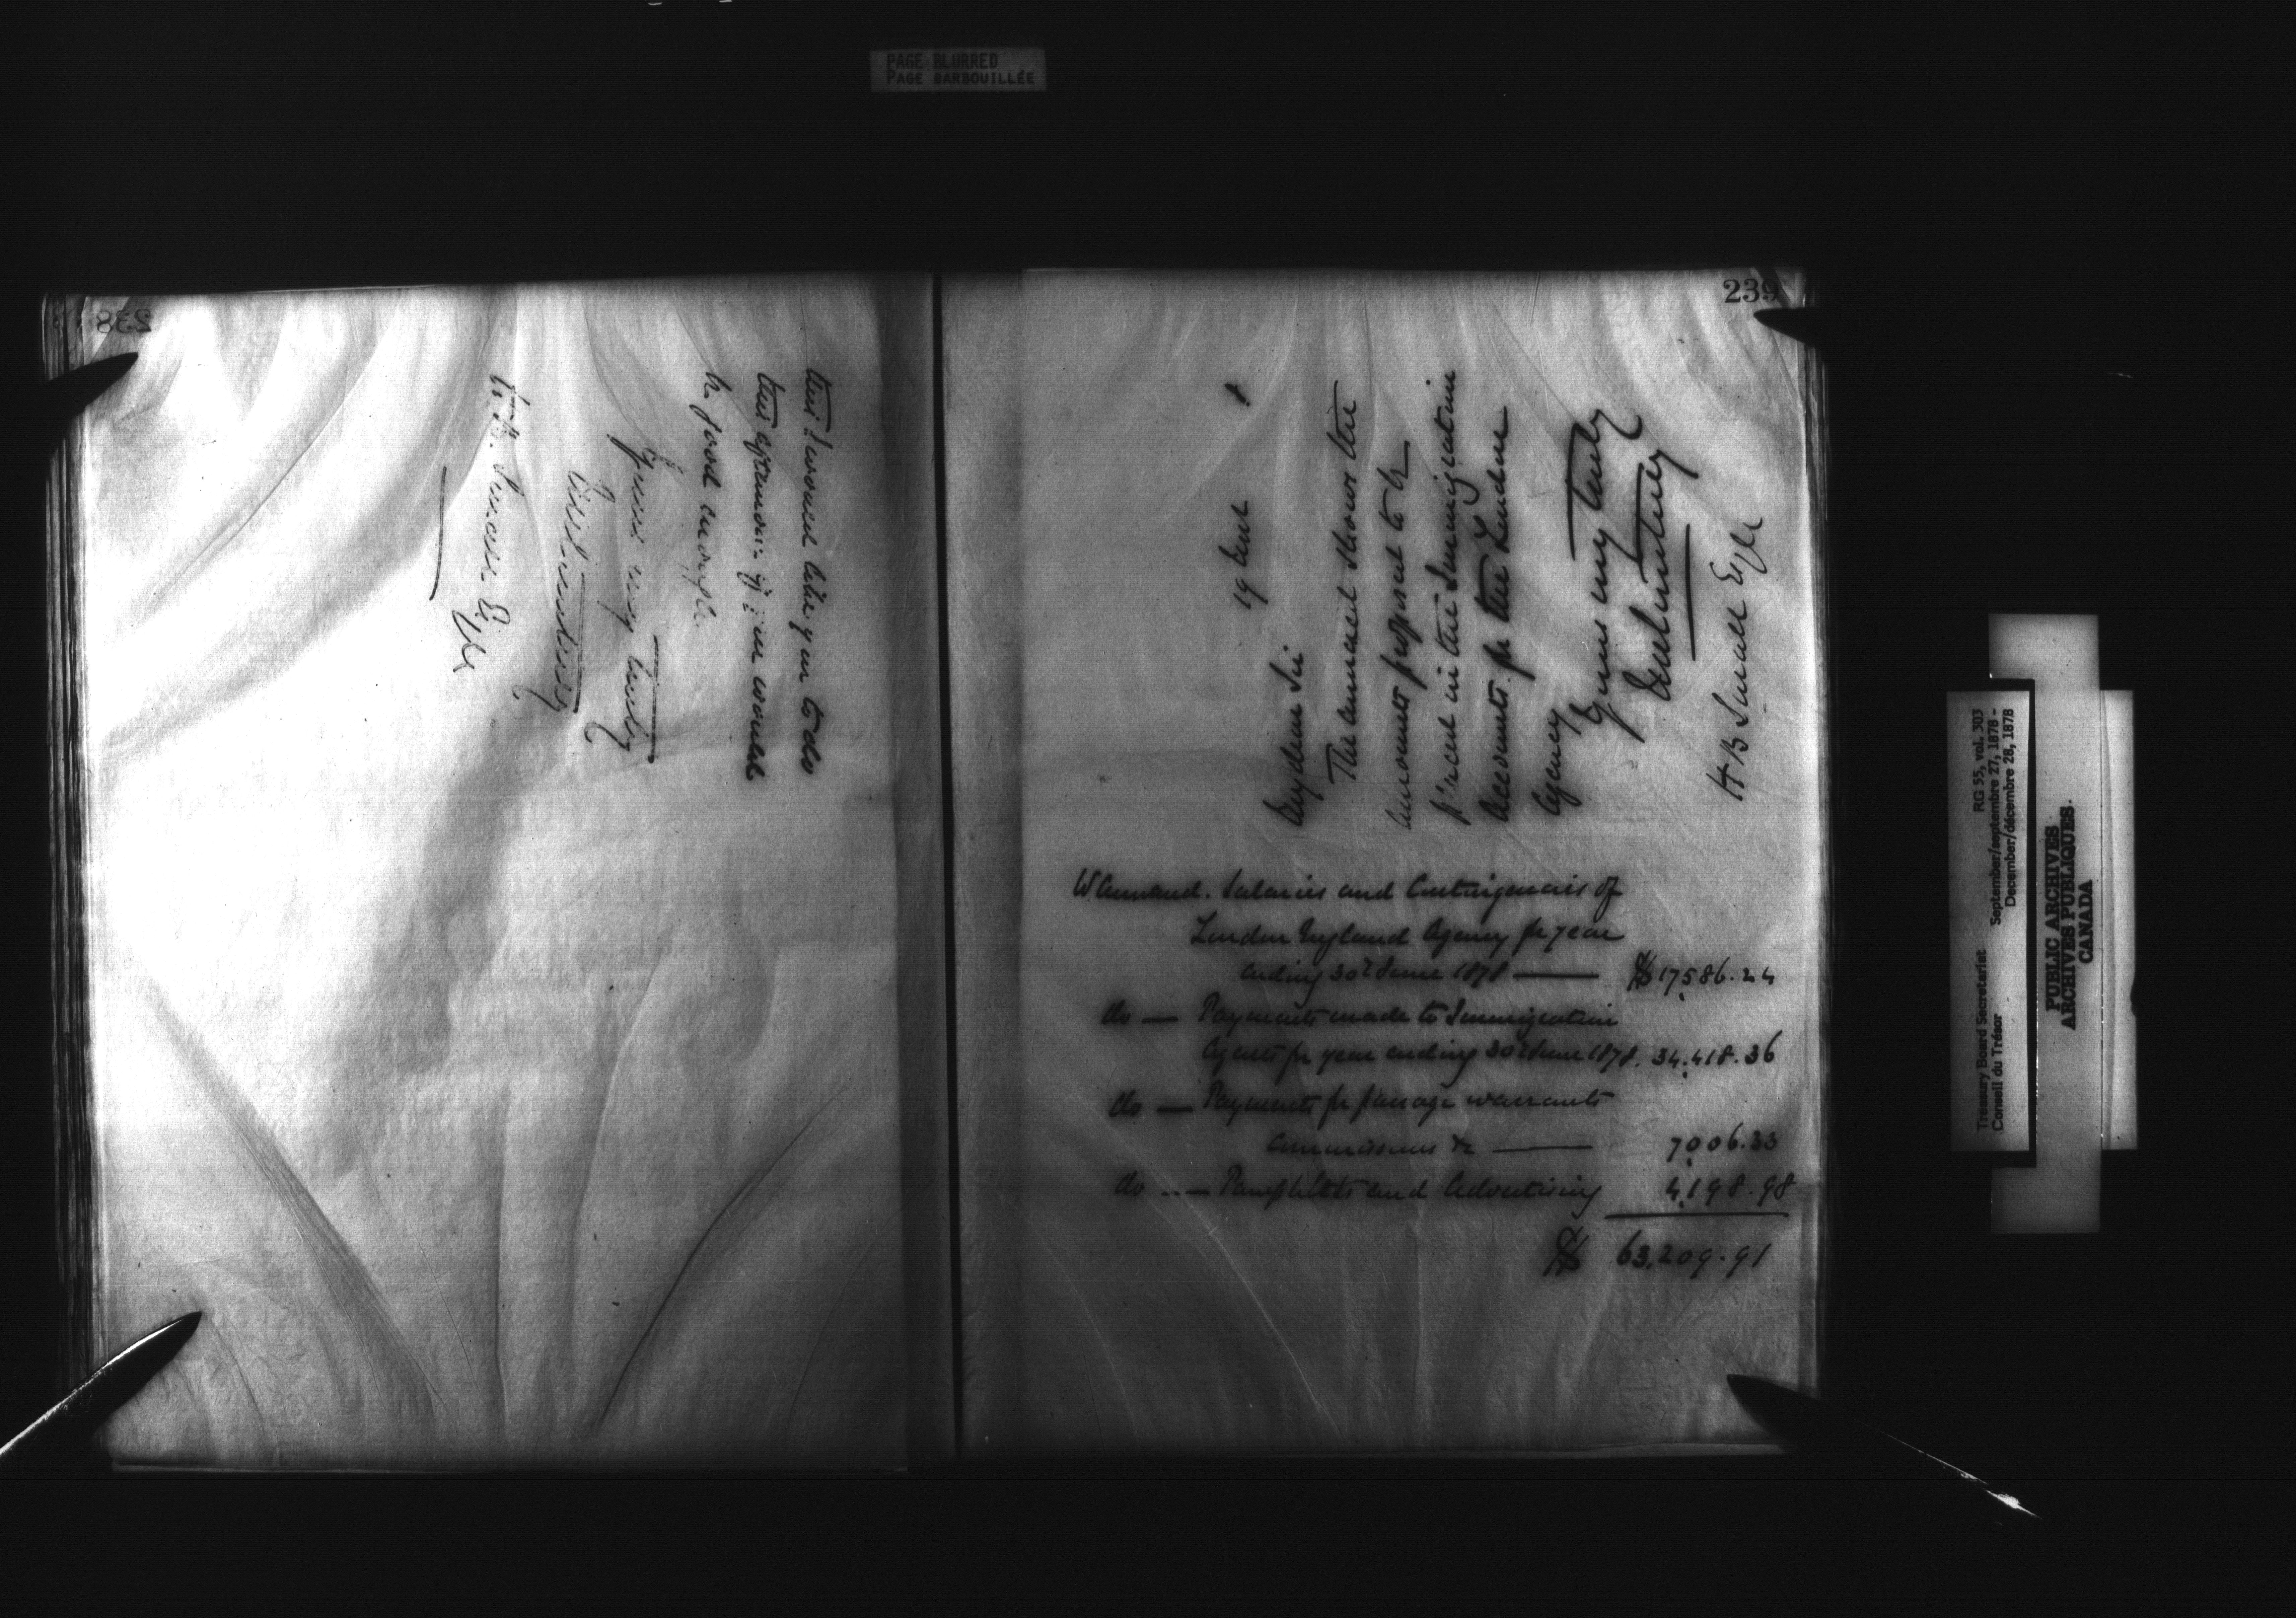 PAGE BLURRED
PAGE BARBOUILLÉE
238
this I would like you to do
this afternoon if you would
be good enough.
Yours very truly
H.B. Small Esqr
239
19
My dear Sir
The annexed shows the
amounts proposed to be
placed in the Immigration
Accounts for the London
Agency
Yours very truly
H B Small Esqr
W Annand. Salaries and Contingencies of
London England Agency for year
ending 30th June 1878 — $17,586.24
do — Payments made to Immigration
Agents for year ending 30th June 1878. 34,418.36
do — Payments for passage warrants
commissions &c — 7,006.33
do — Pamphlets and Advertising 4,198.98
$ 63,209.91
Treasury Board Secretariat RG 55, vol. 303
Conseil du Trésor September/septembre 27, 1878 -
December/décembre 28, 1878
PUBLIC ARCHIVES
ARCHIVES PUBLIQUES
CANADA